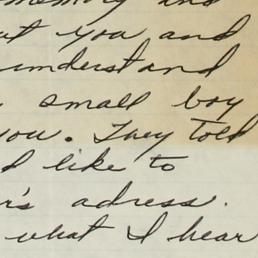 memory and
you and
understand
small boy
you. They told
like to
adress.
what I hear